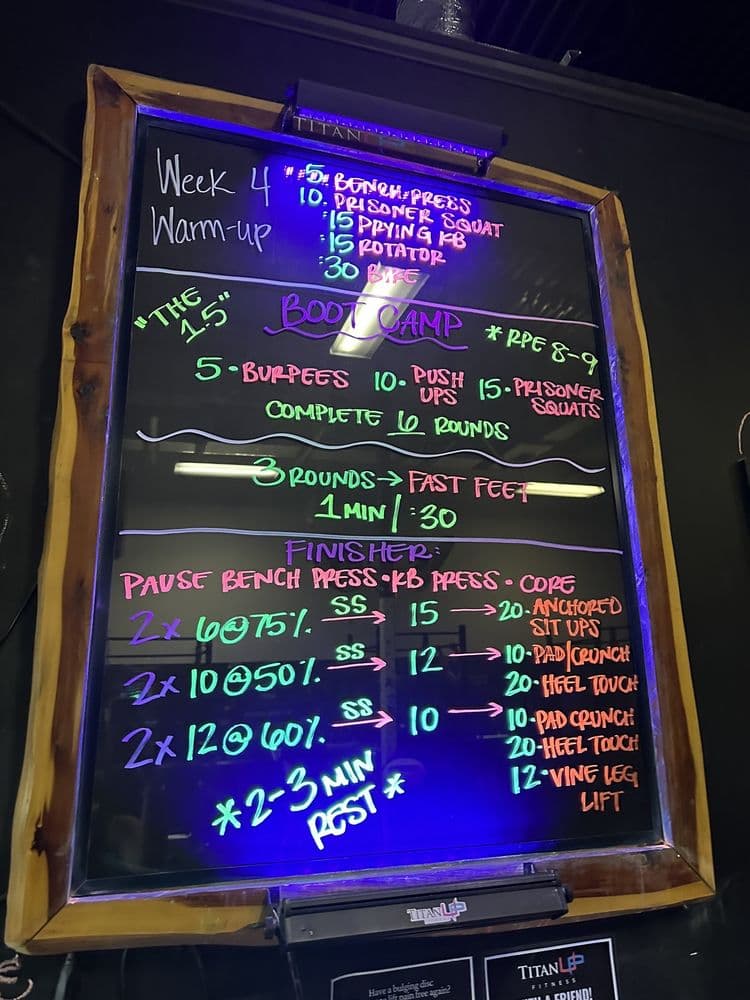 TITAN
Week 4
Warm-up
5 BENCH PRESS
10. PRISONER SQUAT
:15 PRYING KB
:15 ROTATOR
:30 BIKE
"THE 1.5"
BOOT CAMP
* RPE 8-9
5 • BURPEES 10 • PUSH UPS 15 • PRISONER SQUATS
COMPLETE 6 ROUNDS
3 ROUNDS → FAST FEET
1 MIN / :30
FINISHER:
PAUSE BENCH PRESS • KB PRESS • CORE
2x 6@75% SS → 15 → 20 - ANCHORED SIT UPS
2x 10@50% SS → 12 → 10 - PAD/CRUNCH
20 - HEEL TOUCH
2x 12@60% SS → 10 → 10 - PAD CRUNCH
20 - HEEL TOUCH
12 • VINE LEG LIFT
*2-3 MIN REST*
TITANUP
Have a bulging disc
lift pain free again?
TITANUP
FITNESS
FRIEND!